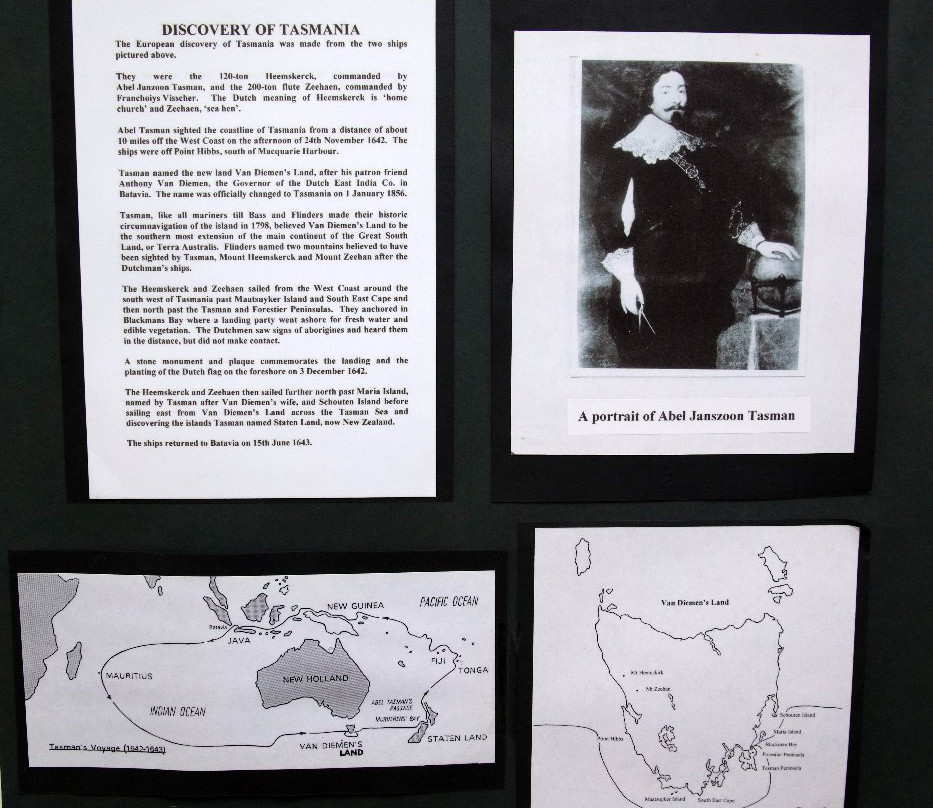 DISCOVERY OF TASMANIA
The European discovery of Tasmania was made from the two ships
pictured above.
They were the 120-ton Heemskerck, commanded by
Abel Janzoon Tasman, and the 200-ton flute Zeehaen, commanded by
Franchoiys Visscher. The Dutch meaning of Heemskerck is 'home
church' and Zeehaen, 'sea hen'.
Abel Tasman sighted the coastline of Tasmania from a distance of about
10 miles off the West Coast on the afternoon of 24th November 1642. The
ships were off Point Hibbs, south of Macquarie Harbour.
Tasman named the new land Van Diemen's Land, after his patron friend
Anthony Van Diemen, the Governor of the Dutch East India Co. in
Batavia. The name was officially changed to Tasmania on 1 January 1856.
Tasman, like all mariners till Bass and Flinders made their historic
circumnavigation of the island in 1798, believed Van Diemen's Land to be
the southern most extension of the main continent of the Great South
Land, or Terra Australis. Flinders named two mountains believed to have
been sighted by Tasman, Mount Heemskerck and Mount Zeehan after the
Dutchman's ships.
The Heemskerck and Zeehaen sailed from the West Coast around the
south west of Tasmania past Maatsuyker Island and South East Cape and
then north past the Tasman and Forestier Peninsulas. They anchored in
Blackmans Bay where a landing party went ashore for fresh water and
edible vegetation. The Dutchmen saw signs of aborigines and heard them
in the distance, but did not make contact.
A stone monument and plaque commemorates the landing and the
planting of the Dutch flag on the foreshore on 3 December 1642.
The Heemskerck and Zeehaen then sailed further north past Maria Island,
named by Tasman after Van Diemen's wife, and Schouten Island before
sailing east from Van Diemen's Land across the Tasman Sea and
discovering the islands Tasman named Staten Land, now New Zealand.
The ships returned to Batavia on 15th June 1643.
A portrait of Abel Janszoon Tasman
PACIFIC OCEAN
NEW GUINEA
Batavia
JAVA
FIJI
TONGA
MAURITIUS
NEW HOLLAND
INDIAN OCEAN
ABEL TASMAN'S
PASSAGE
MURDERERS' BAY
STATEN LAND
VAN DIEMEN'S
LAND
Tasman's Voyage (1642-1643)
Van Diemen's Land
Mt Heemskirk
Mt Zeehan
Schouten Island
Maria Island
Point Hibbs
Blackman Bay
Forestier Peninsula
Tasman Peninsula
Maatsuyker Island
South East Cape